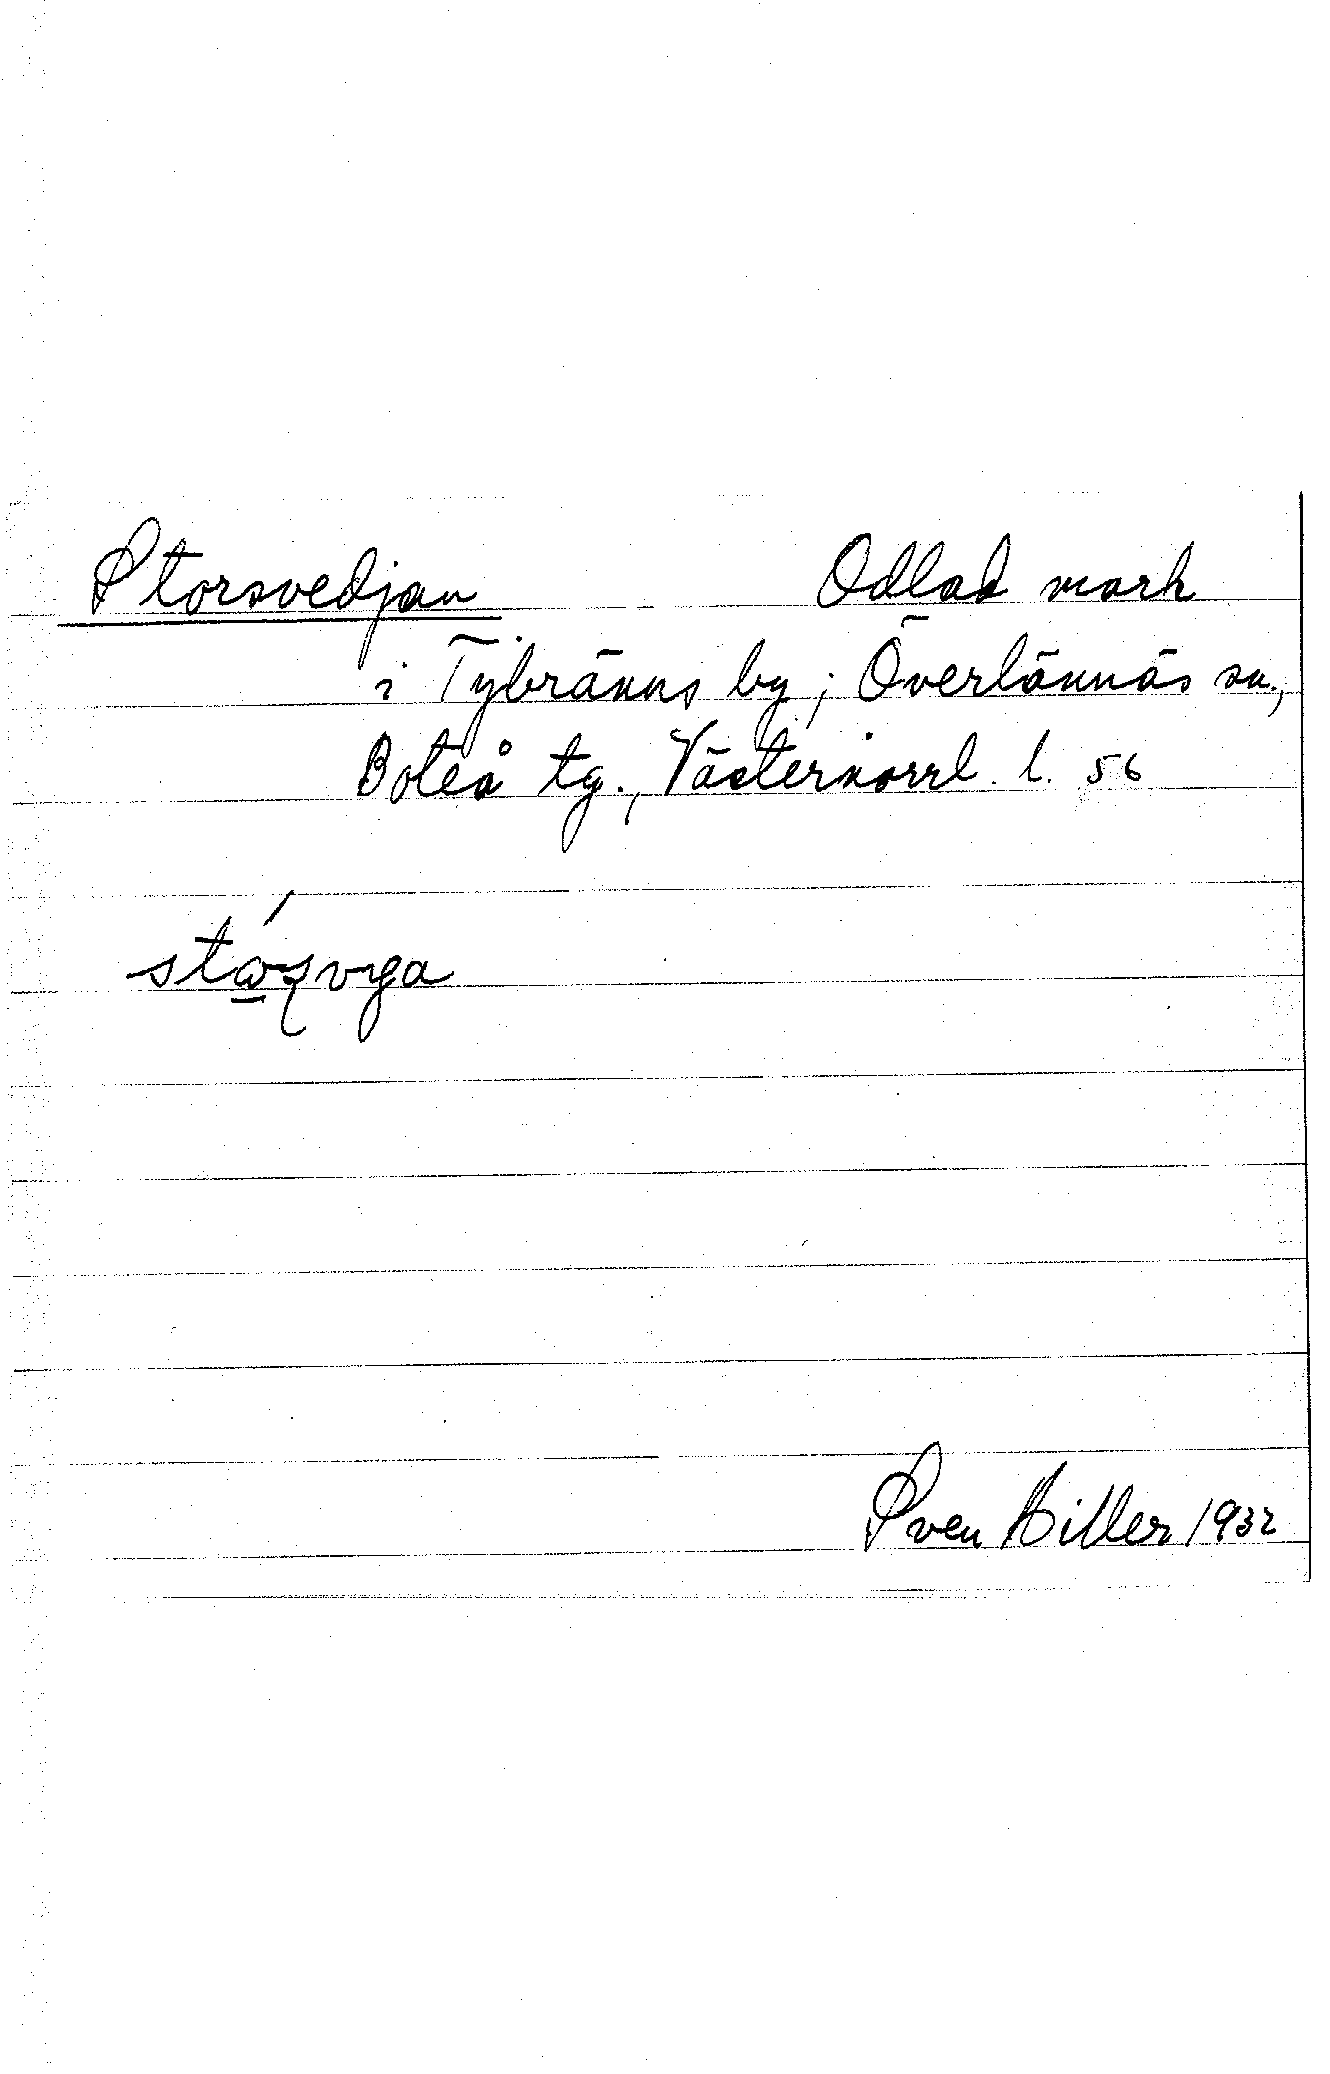 Storsvedjan Odlad mark
i Tybränns by; Överlännäs sn.,
Boteå tg., Västernorrl. l. 56
Sven Hiller 1932